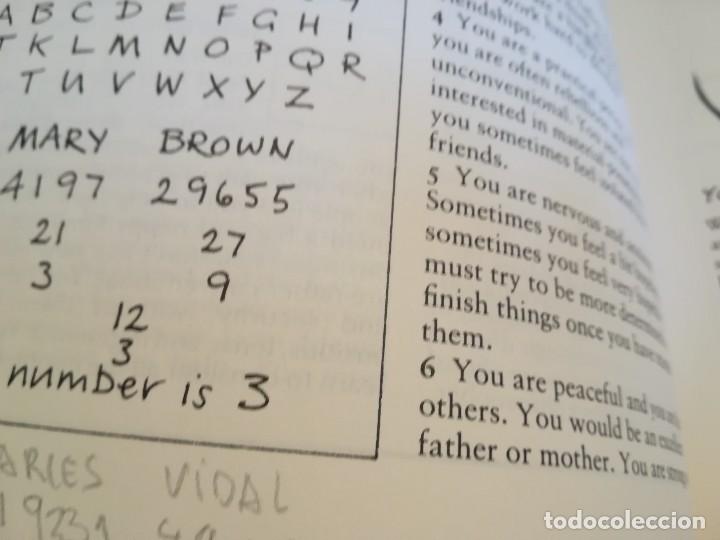 A B C D E F G H I
K L M N O P Q R
T U V W X Y Z
MARY BROWN
4197 29655
21 27
3 9
12
3
number is 3
ARLES VIDAL
endships.
4 You are a practical
you are often rebellious
unconventional. You
interested in material
you sometimes feel
friends.
5 You are nervous and
Sometimes you feel a bit
sometimes you feel very
must try to be more
finish things once you have
them.
6 You are peaceful and you
others. You would be an
father or mother. You are
todocoleccion
todocoleccion.net